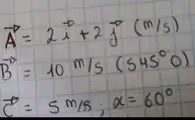 A⃗ = 2 i⃗ + 2 j⃗ (m/s)
B⃗ = 10 m/s (S45°O)
C⃗ = 5 m/s; α = 60°